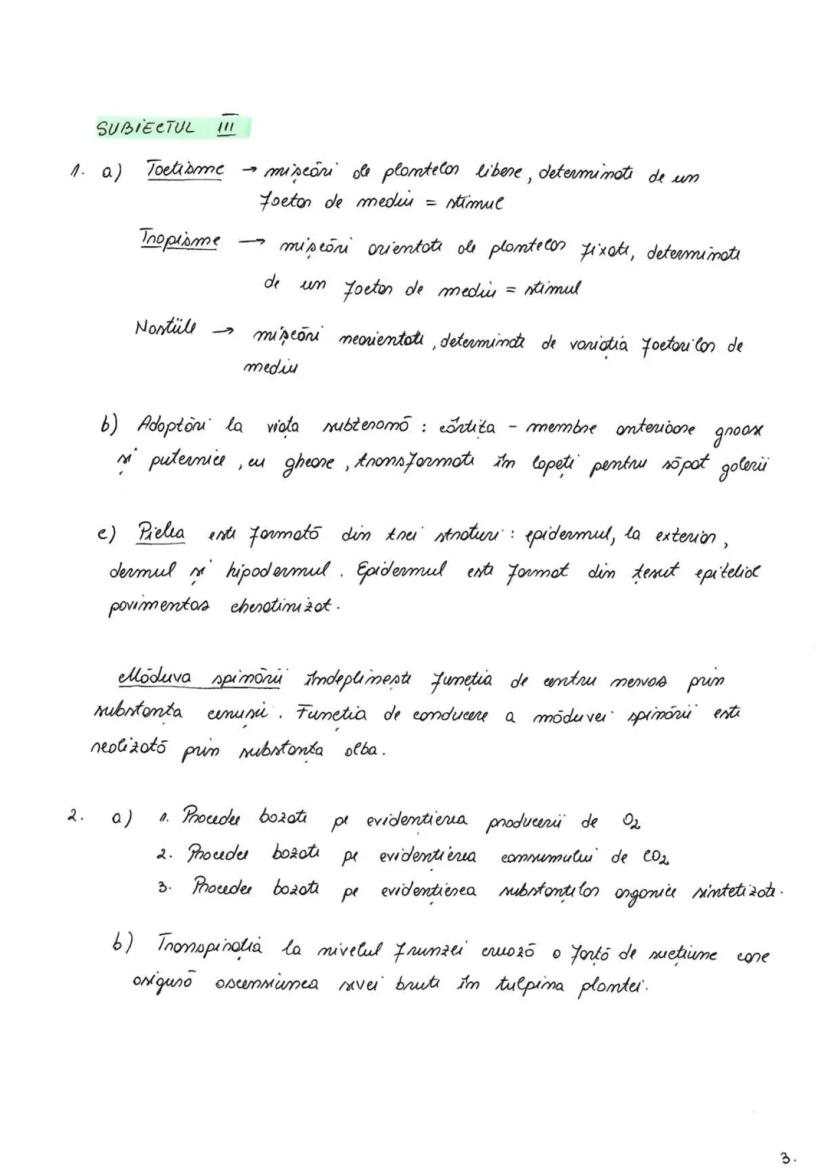 SUBIECTUL III
1. a) Tactisme → mișcări ale plantelor libere, determinate de un
factor de mediu = stimul
Tropisme → mișcări orientate ale plantelor fixate, determinate
de un factor de mediu = stimul
Nastiile → mișcări neorientate, determinate de variația factorilor de
mediu
b) Adaptări la viața subterană : cârtița - membre anterioare groase
și puternice, cu gheare, transformate în lopeți pentru săpat galerii
c) Pielea este formată din trei straturi : epidermul, la exterior,
dermul și hipodermul. Epidermul este format din țesut epitelial
pavimentos cheratinizat.
Măduva spinării îndeplinește funcția de centru nervos prin
substanța cenușie. Funcția de conducere a măduvei spinării este
realizată prin substanța albă.
2. a) 1. Procedee bazate pe evidențierea producerii de O2
2. Procedee bazate pe evidențierea consumului de CO2
3. Procedee bazate pe evidențierea substanțelor organice sintetizate.
b) Transpirația la nivelul frunzei crează o forță de sucțiune care
asigură ascensiunea sevei brute în tulpina plantei.
3.